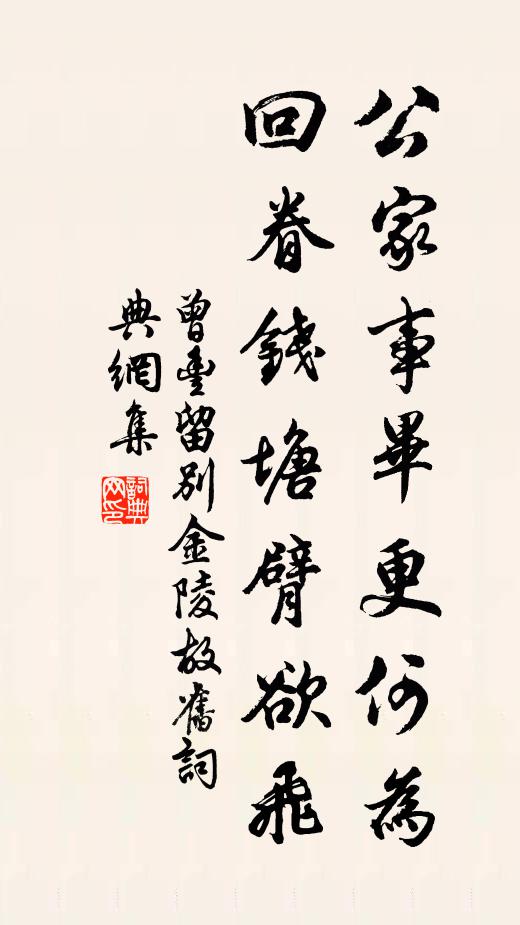 公家事畢更何為
回眷錢塘臂欲飛
曾豊留別金陵故舊詞
典網集
詞典
网印